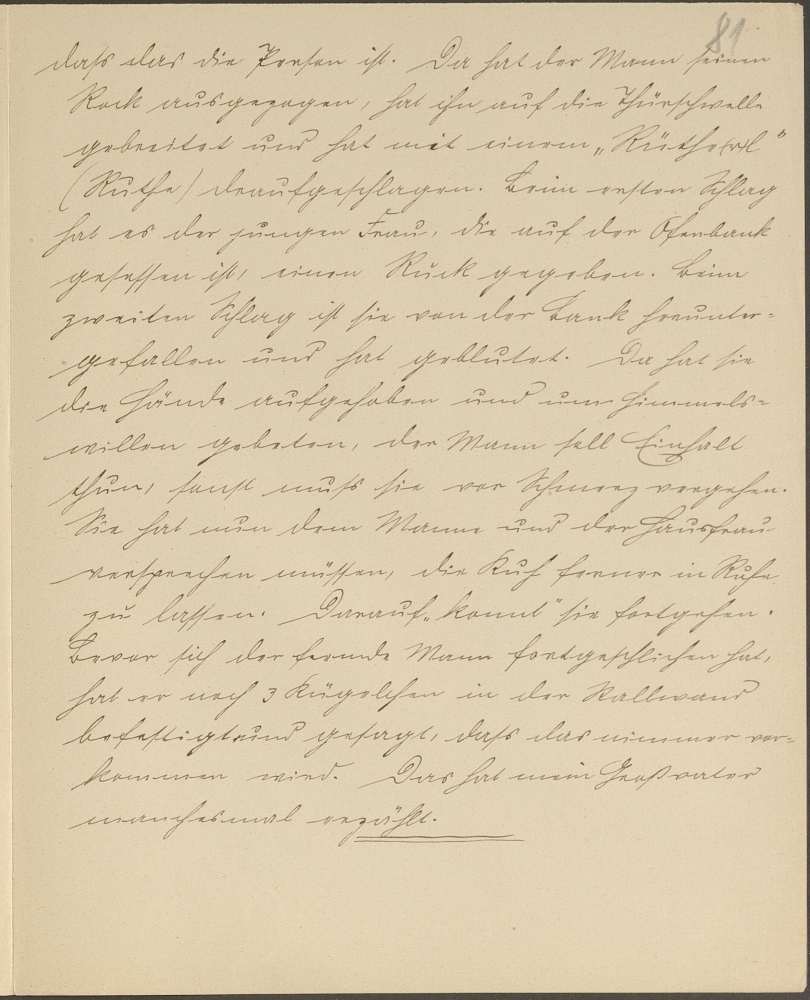 81
dass das die Person ist. Da hat der Mann seinen
Rock ausgezogen, hat ihn auf die Thürschwelle
gebreitet und hat mit einem „Rüthe(r)l"
(Ruthe) draufgeschlagen. Beim ersten Schlag
hat es der jungen Frau, die auf der Ofenbank
gesessen ist, einen Ruck gegeben. Beim
zweiten Schlag ist sie von der Bank herunter=
gefallen und hat geblutet. Da hat sie
die Hände aufgehoben und um Himmels=
willen gebeten, der Mann soll Einhalt
thun, sonst muss sie vor Schmerz vergehen.
Sie hat nun dem Manne und der Hausfrau
versprechen müssen, die Kuh ferner in Ruhe
zu lassen. Darauf „konnt" sie fortgehen.
Bevor sich der fremde Mann fortgeschlichen hat,
hat er noch 3 Kügelchen in der Stallwand
befestigt und gesagt, dass das nimmer vor=
kommen wird. Das hat mein Großvater
manchesmal erzählt.